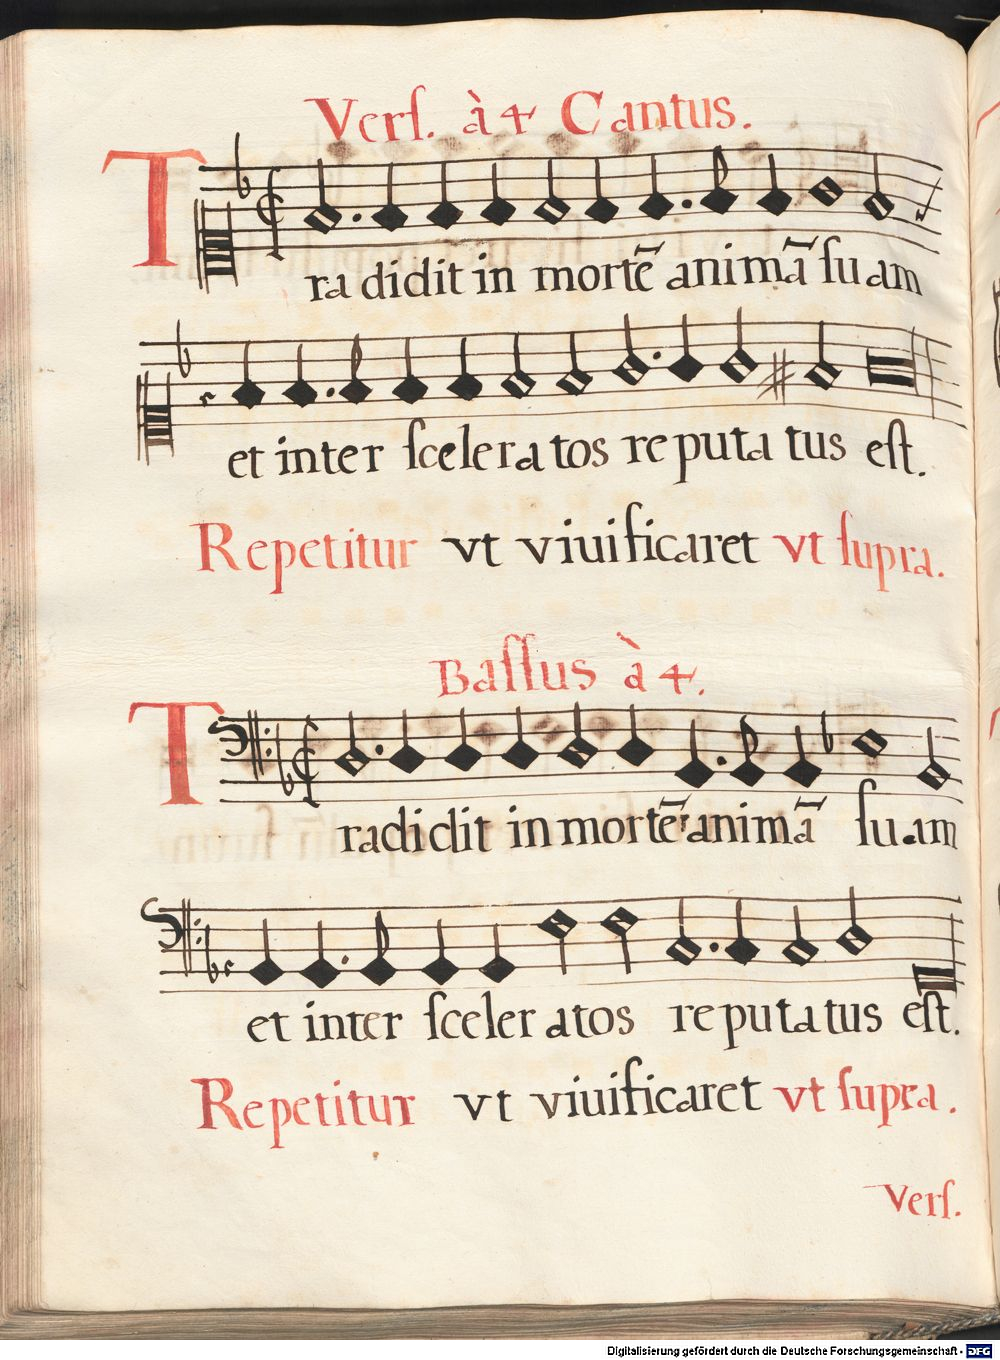 Verſ. à 4 Cantus.
Tradidit in mortē animā ſuam
et inter ſceleratos reputatus eſt.
Repetitur vt viuificaret vt ſupra.
Baſſus à 4.
Tradidit in mortē animā ſuam
et inter ſceleratos reputatus eſt.
Repetitur vt viuificaret vt ſupra.
Verſ.
Digitalisierung gefördert durch die Deutsche Forschungsgemeinschaft - DFG